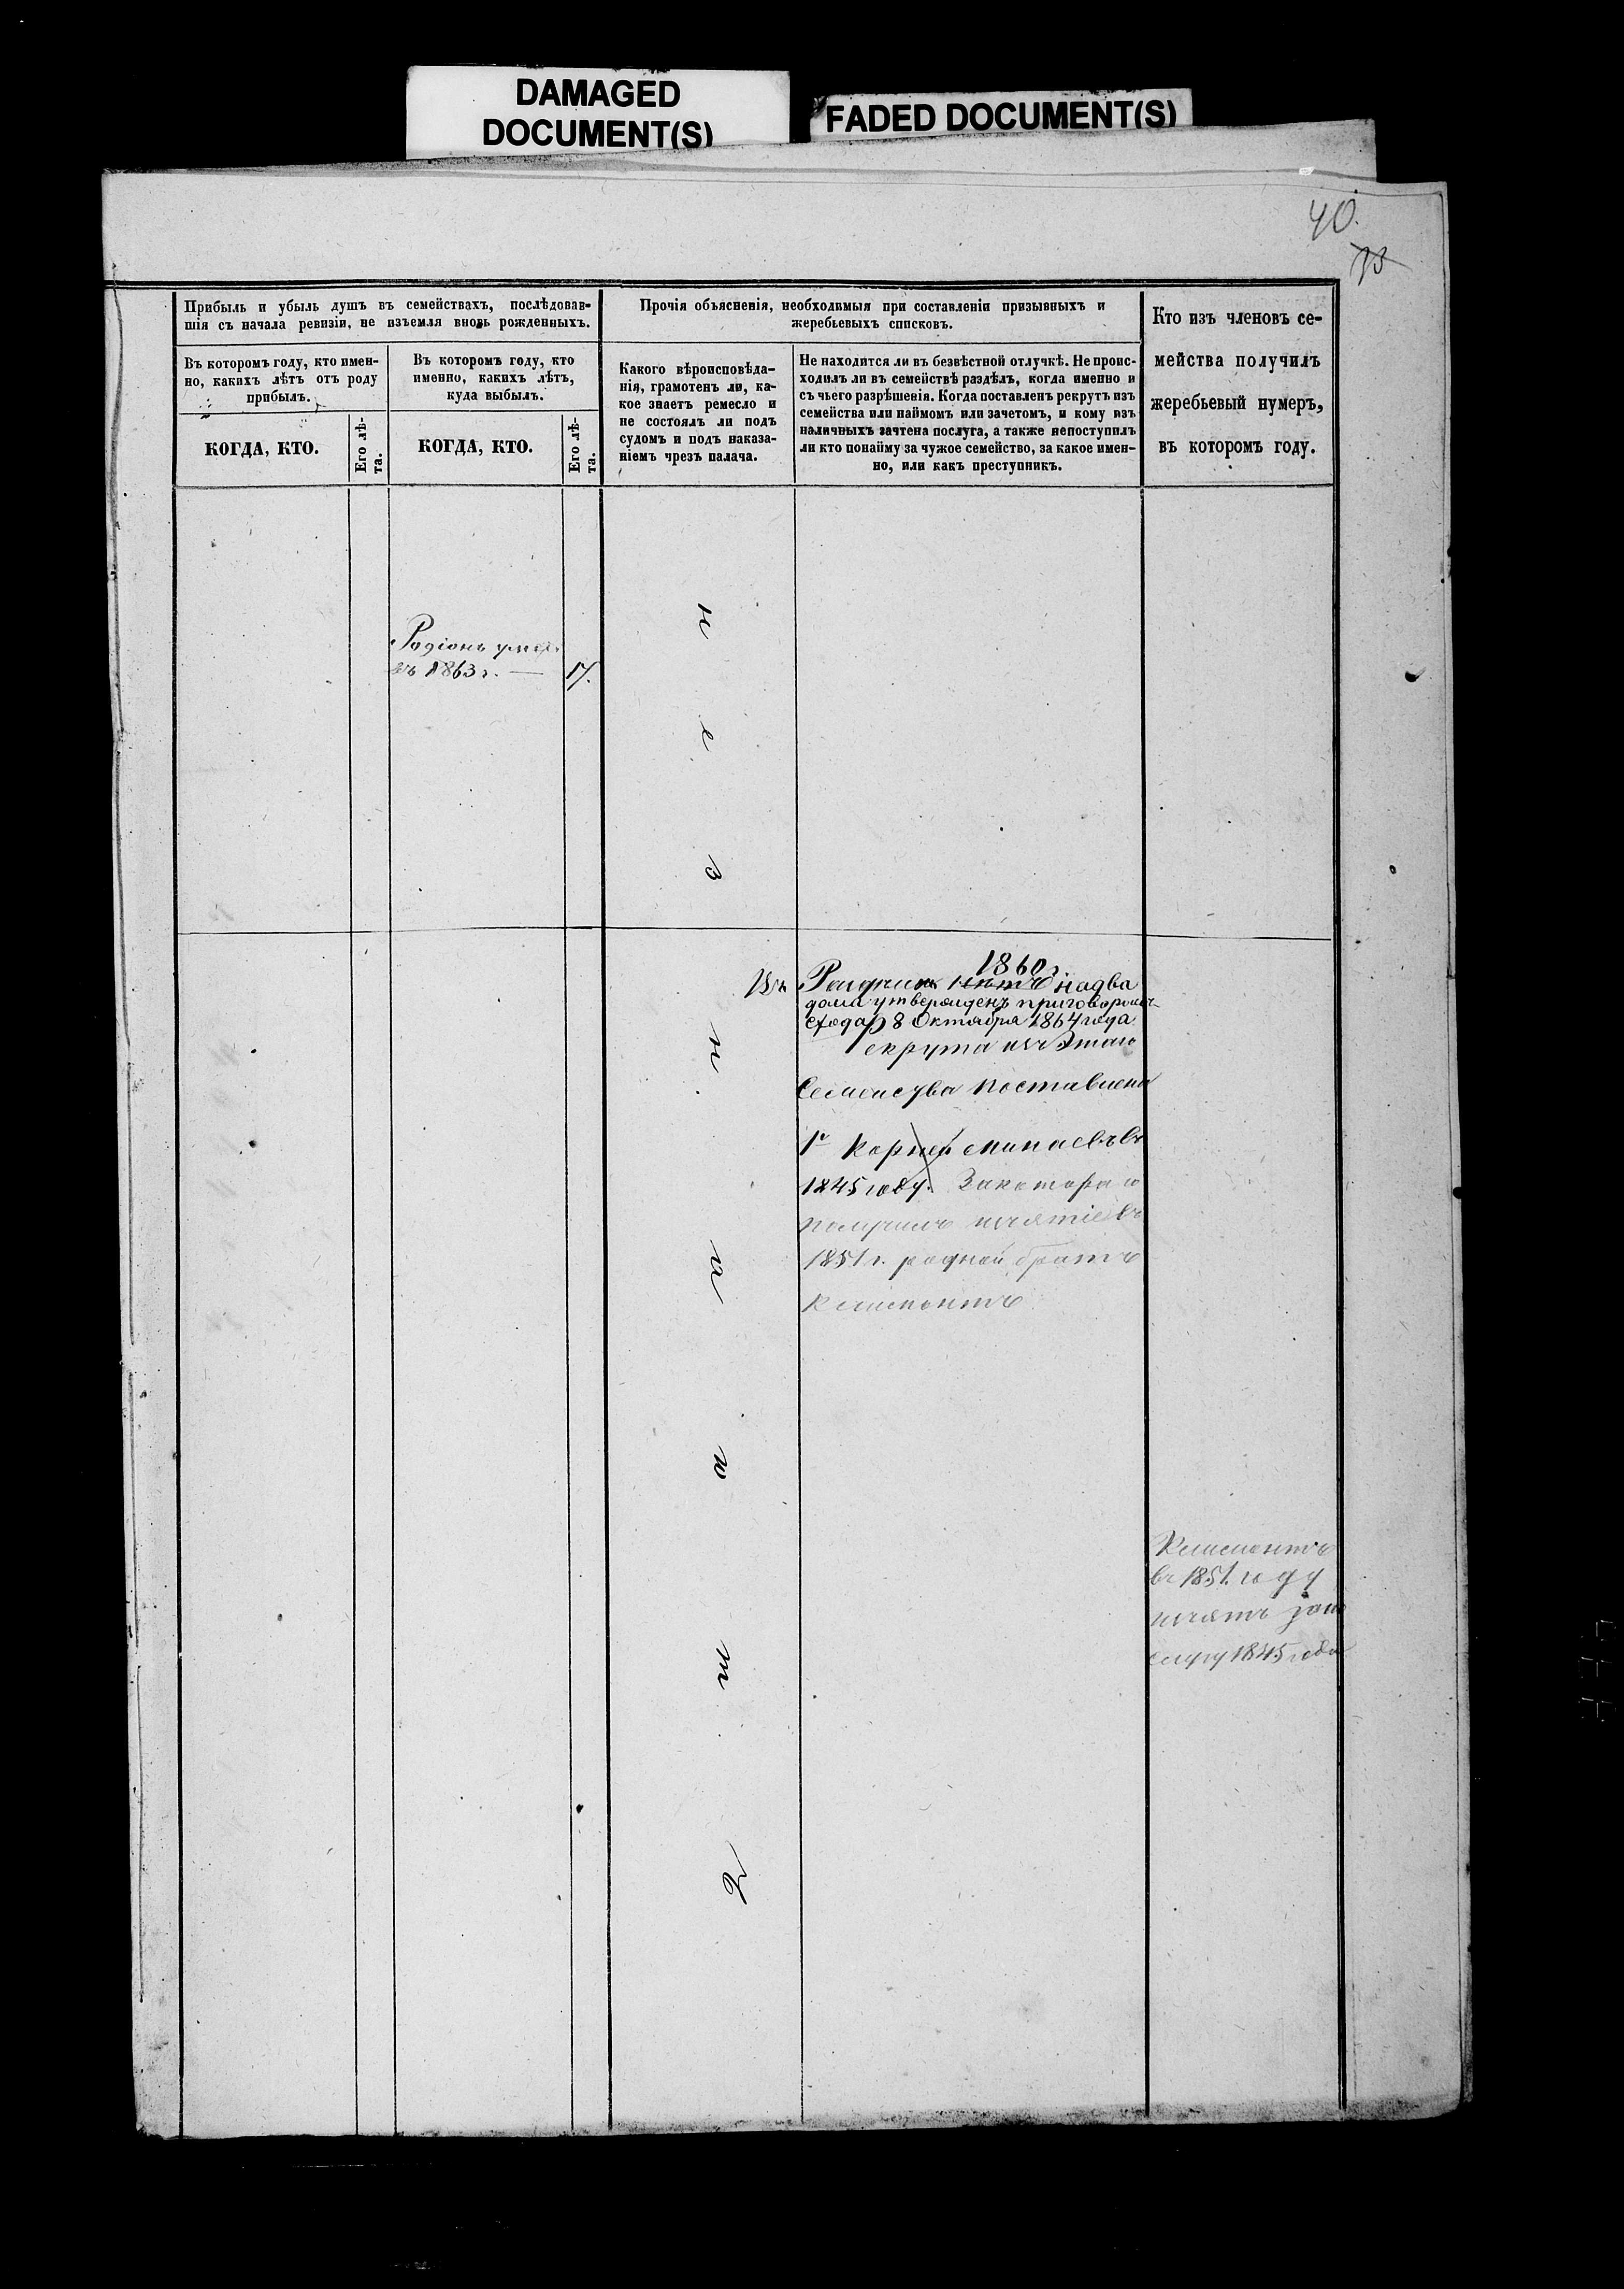 DAMAGED
DOCUMENT(S)
FADED DOCUMENT(S)
40.
Прибыль и убыль душъ въ семействахъ, послѣдовав-
шія съ начала ревизіи, не изъемля вновь рожденныхъ.
Прочія объясненія, необходимыя при составленіи призывныхъ и
жеребьевыхъ списковъ.
Кто изъ членовъ се-
мейства получилъ
жеребьевый нумеръ,
въ которомъ году.
Въ которомъ году, кто имен-
но, какихъ лѣтъ отъ роду
прибылъ.
Въ которомъ году, кто
именно, какихъ лѣтъ,
куда выбылъ.
Какого вѣроисповѣда-
нія, грамотенъ ли, ка-
кое знаетъ ремесло и
не состоялъ ли подъ
судомъ и подъ наказа-
ніемъ чрезъ палача.
Не находится ли въ безвѣстной отлучкѣ. Не проис-
ходилъ ли въ семействѣ раздѣлъ, когда именно и
съ чьего разрѣшенія. Когда поставленъ рекрутъ изъ
семейства или наймомъ или зачетомъ, и кому изъ
наличныхъ зачтена послуга, а также непоступилъ
ли кто понайму за чужое семейство, за какое имен-
но, или какъ преступникъ.
КОГДА, КТО.
Его лѣ-
та.
КОГДА, КТО.
Его лѣ-
та.
Родіонъ умер.
въ 1863 г. — 17.
н
е
з
н
а
ю
т
ъ
1860 г.
Въ надва
дома утвержденъ приговоромъ
схода 8 Октября 1864 года
екрута изъ этаго
Семейсва поставлены
1й Корней Минаевъ въ
1845 году. Закотораго
получилъ изъятіе въ
1851 г. родной братъ
Клементъ
Клементъ
въ 1851. году
изъятъ запо
слугу 1845 года